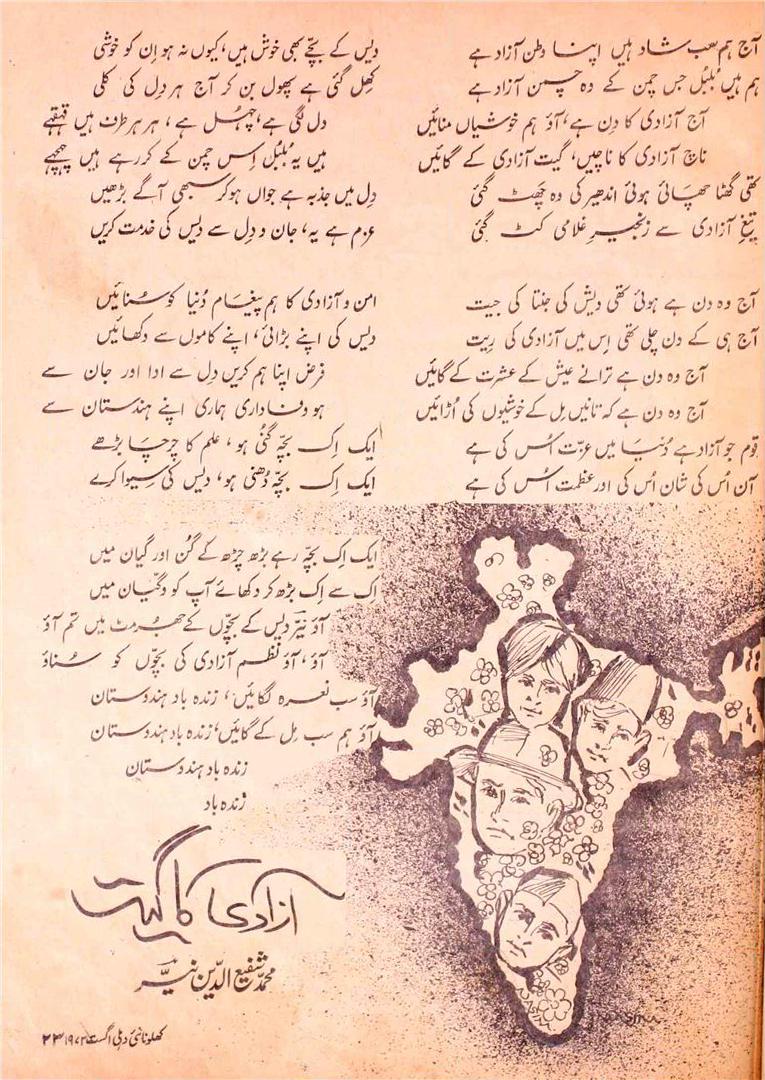 آج ہم سب شاد ہیں اپنا وطن آزاد ہے
ہم ہیں بُلبُل جس چمن کے وہ چمن آزاد ہے
آج آزادی کا دِن ہے، آؤ ہم خوشیاں منائیں
ناچ آزادی کا ناچیں، گیت آزادی کے گائیں
تھی گھٹا چھائی ہوئی اندھیر کی وہ چھٹ گئی
تیغِ آزادی سے زنجیرِ غلامی کٹ گئی
دیس کے بچّے بھی خوش ہیں، کیوں نہ ہو اِن کو خوشی
کِھل گئی ہے پھول بن کر آج ہر دِل کی کلی
دل لگی ہے، چُہل ہے، ہر ہر طرف ہیں قہقہے
ہیں یہ بُلبُل اِس چمن کے کر رہے ہیں چہچہے
دِل میں جذبہ ہے جواں ہو کر سبھی آگے بڑھیں
عزم ہے یہ، جان و دِل سے دیس کی خدمت کریں
آج وہ دن ہے ہوئی تھی دیش کی جنتا کی جیت
آج ہی کے دن چلی تھی اِس میں آزادی کی رِیت
آج وہ دن ہے ترانے عیش کے عشرت کے گائیں
آج وہ دن ہے کہ تانیں مِل کے خوشیوں کی اُڑائیں
قوم جو آزاد ہے دُنیا میں عزّت اُس کی ہے
آن اُس کی شان اُس کی اور عظمت اُس کی ہے
امن و آزادی کا ہم پیغام دُنیا کو سُنائیں
دیس کی اپنے بڑائی، اپنے کاموں سے دکھائیں
فرض اپنا ہم کریں دِل سے ادا اور جان سے
ہو وفاداری ہماری اپنے ہندستان سے
ایک اِک بچّہ گُنی ہو، علم کا چرچا بڑھے
ایک اِک بچّہ دُھنی ہو، دیس کی سیوا کرے
ایک اِک بچّہ رہے بڑھ چڑھ کے گُن اور گیان میں
اِک سے اِک بڑھ کر دکھائے آپ کو وگیان میں
آؤ نیّر دیس کے بچّوں کے جھرمٹ میں تم آؤ
آؤ، آؤ نظم آزادی کی بچّوں کو سُناؤ
آؤ سب نعرہ لگائیں، زندہ باد ہندستان
آؤ ہم سب مِل کے گائیں، زندہ باد ہندستان
زندہ باد ہندستان
زندہ باد
آزادی کا گیت
محمد شفیع الدّین نیّر
کھلونا نئی دہلی اگست ۱۹۷۲ ۲۳